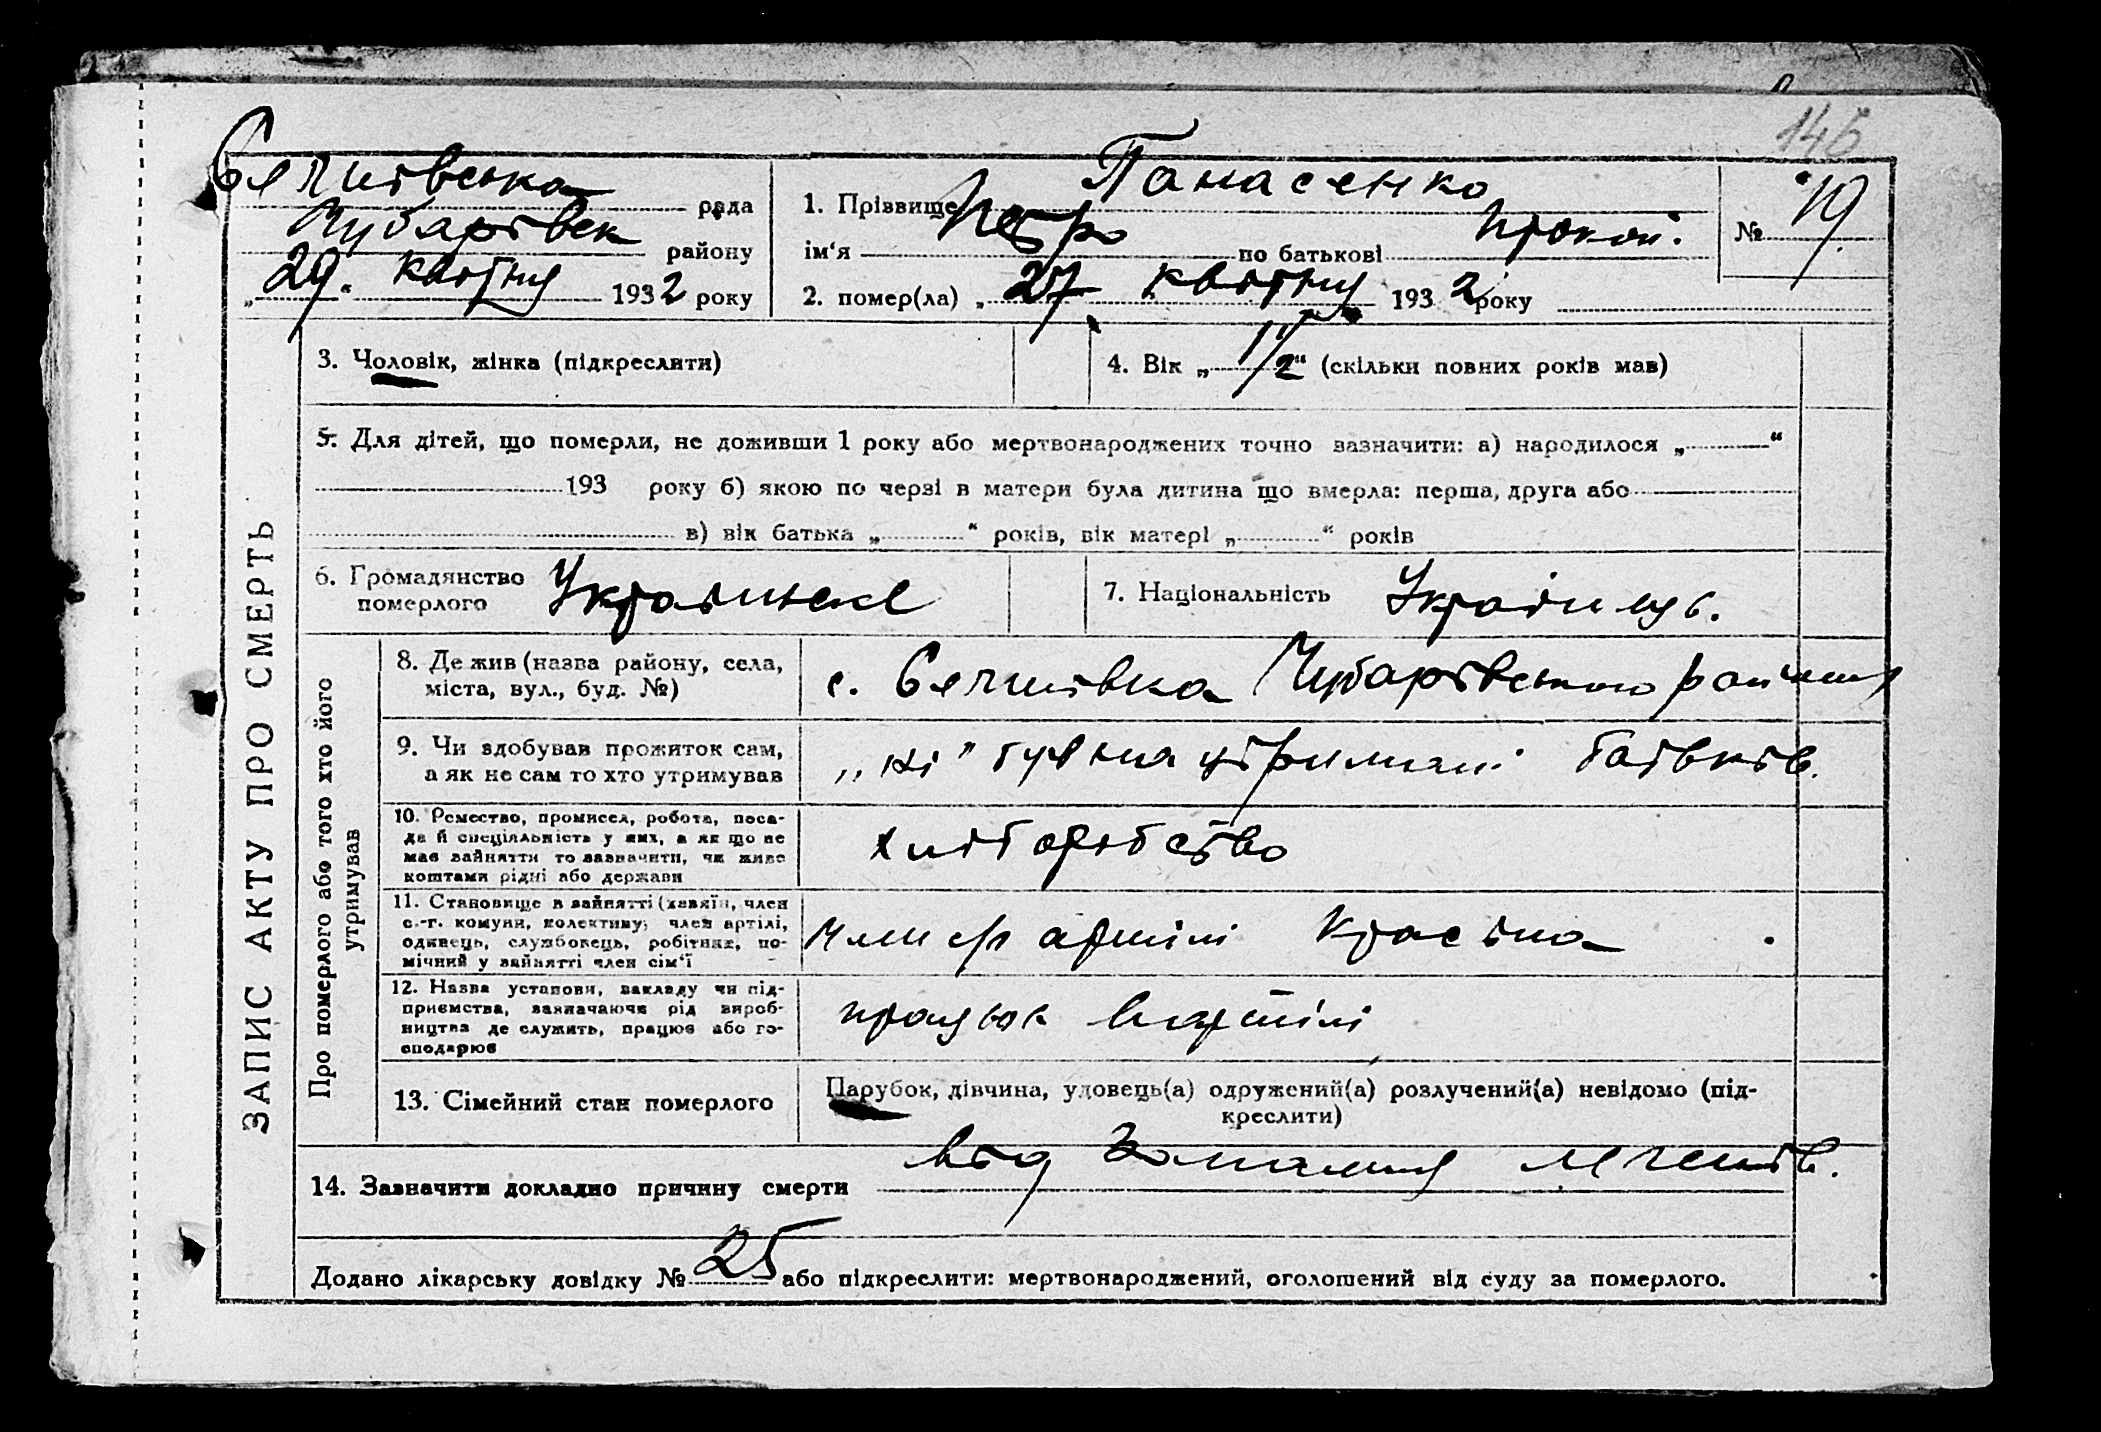 146
Сечшівська рада
Чубарівськ району
„29“ квітня 1932 року
1. Пріввище Панасенко
ім'я Петро по батькові Прокоп.
2. помер(ла) „27 квітня 1932 року
№ 19
3. Чоловік, жінка (підкреслити)
4. Вік „1 1/2“ (скільки повних років мав)
5. Для дітей, що померли, не доживши 1 року або мертвонароджених точно зазначити: а) народилося „ “
193 року б) якою по черзі в матери була дитина що вмерла: перша, друга або
в) вік батька „ “ років, вік матері „ “ років
6. Громадянство
померлого Украинське
7. Національність Українець.
ЗАПИС АКТУ ПРО СМЕРТЬ
Про померлого або того хто його
утримував
8. Де жив (назва району, села,
міста, вул., буд. №)
с. Чубарівського району
9. Чи здобував прожиток сам,
а як не сам то хто утримував
„ні" був на утримані батьків.
10. Ремество, промисел, робота, поса-
да й спеціяльність у них, а як що не
мав зайняття то зазначити, чи живе
коштами рідні або держави
хліборобство
11. Становище в зайнятті (хазяїн, член
с.-г. комуни, колективу, член артілі,
одинець, службовець, робітник, по-
мічний у зайнятті член сім'ї
член с/г артілі Красіна
12. Назва установи, закладу чи під-
приємства, зазначаючи рід вироб-
ництва де служить, працює або го-
сподарює
працює в артілі
13. Сімейний стан померлого
Парубок, дівчина, удовець(а) одружений(а) розлучений(а) невідомо (під-
креслити)
14. Зазначити докладно причину смерти від запалення легенів.
Додано лікарську довідку № 25 або підкреслити: мертвонароджений, оголошений від суду за померлого.